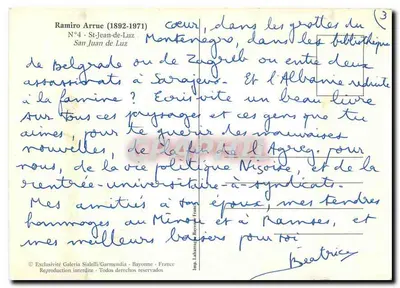 Ramiro Arrue (1892-1971)
N°4 - St-Jean-de-Luz
San Juan de Luz
3
Cœur, dans les grottes du
Montenegro, dans les bibliothèque
de Belgrade ou de Zagreb ou entre deux
assassinats à Sarajevo. Et l'Albanie réduite
à la famine ? Ecris vite un beau livre
sur tous ces paysages et ces gens que tu
aimes, pour te guérir des mauvaises
nouvelles, de la de l'Agreg. pour
nous, de la vie politique Niçoise, et de la
rentrée-universitaire-à-syndicats.
Mes amitiés à ton époux, mes tendres
hommages au Minou et à Ramses, et
mes meilleurs baisers pour toi
Béatrice
© Exclusivité Galeria Sialelli/Garmendia - Bayonne - France
Reproduction interdite - Todos derechos reservados